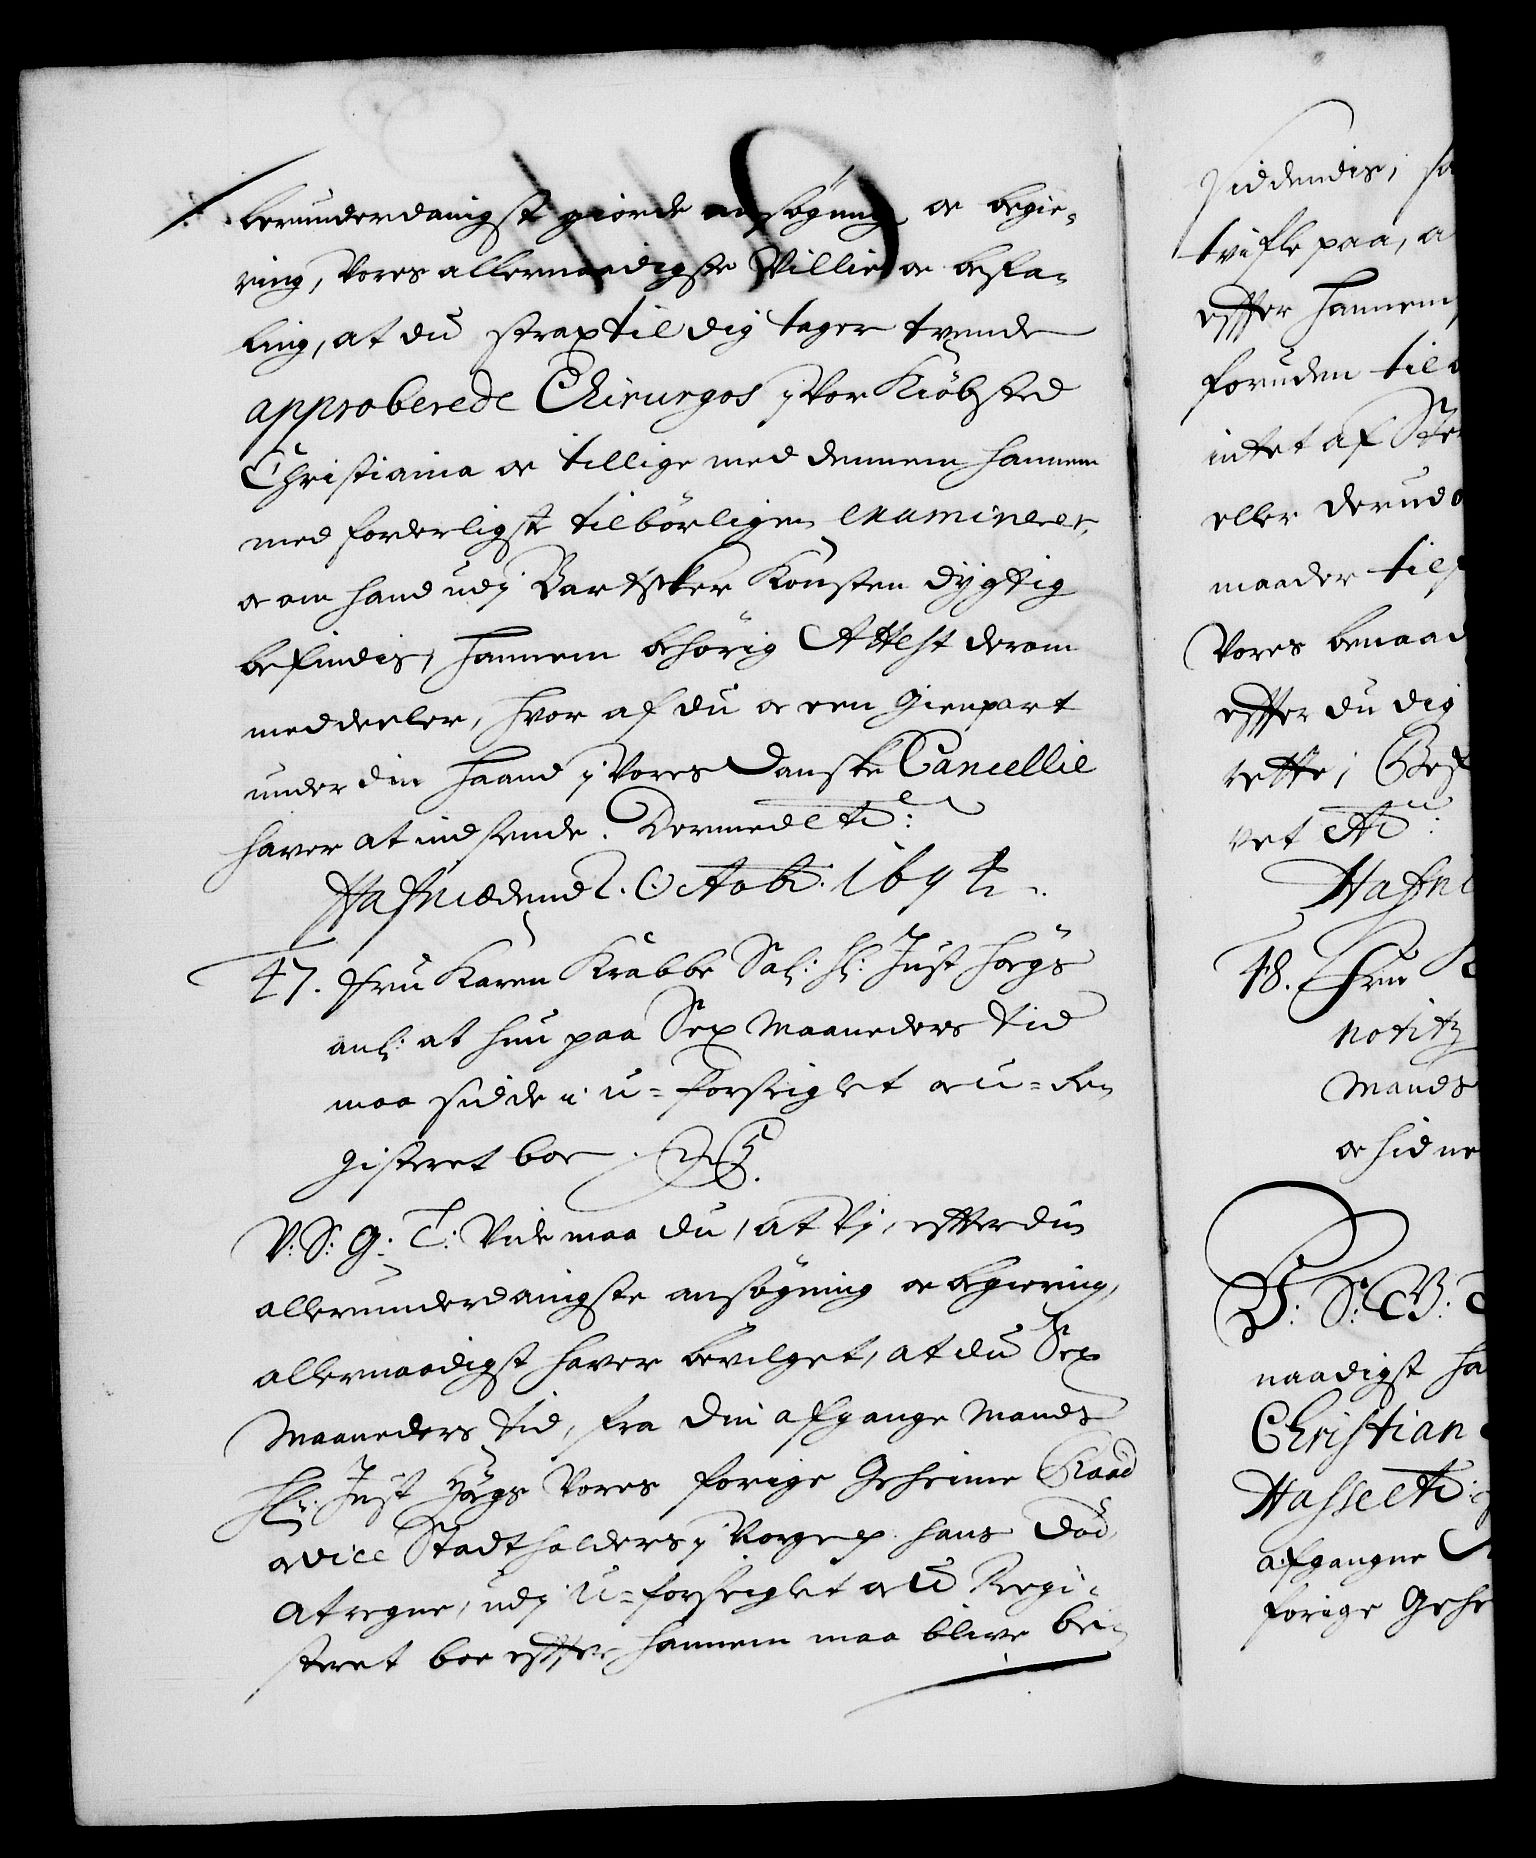 lerunderdanigst giorde ansøgning oc begie-
ring, Vores allernaadigste Villie oc befa-
ling, at du strax til dig tager tvende
approberede Chirurgos j Vor Kiøbsted
Christiania oc tillige med dennem hannem
med forderligst tilbørligen examinerer,
oc om hand udj Bartsker Konsten dygtig
befindis, hannem behørig Attest derom
meddeeler, hvor af du oc een Gienpart
under din haand j Vores Danske Cancellie
haver at indsende. Dermed etc:
Hafniæ den 2. Octobr. 1694.
47. Fru Karen Krabbe Sal: Hr: Just Høgs
anl: at hun paa Sex Maaneders tid
maa sidde i u-forseiglet oc u-Re-
gisteret boe.
V: S: G: T: Vide maa du, at Vj, efter din
allerunderdanigste ansøgning oc begiering,
allernaadigst haver bevilget, at du Sex
Maaneders tid, fra din afgangne Mands
Hr: Just Høgs Vores forige Geheime Raad
oc Vice Stadtholders j Norge p. hans død
at regne, udj u-forseiglet oc U Regi-
steret boe efter hannem maa blive be-
siddendis, sa
tvifle paa, a
effter hannem,
foruden til
intet af
eller derud
maader til
Vores benaad
effter du dig
rette; Bef
vet etc:
Hafni
48. Fru K
notitz
Mands
oc hid ne
V: S: G: T
naadigst ha
Christian
Hasse etc:
afgangne
forige Gehe